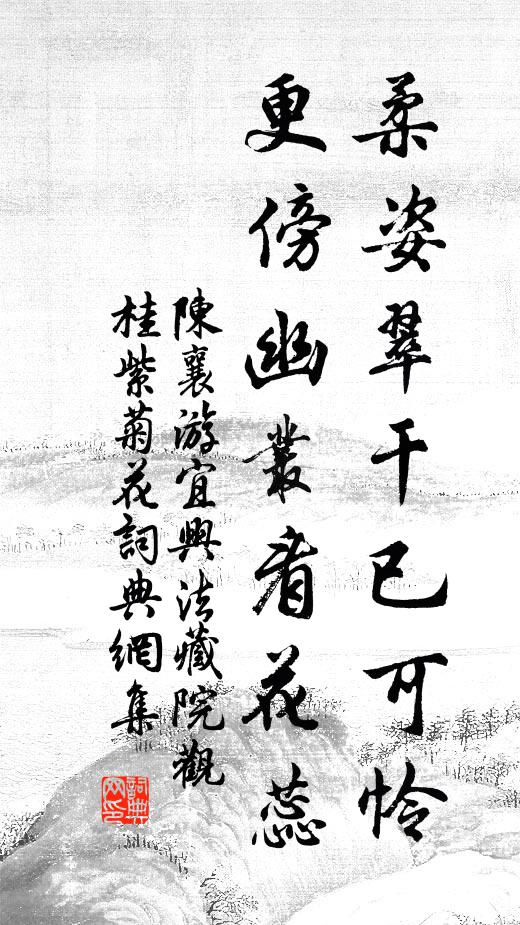 柔姿翠干已可怜
更傍幽叢看花蕊
陳襄游宜興法藏院觀
桂紫菊花詞典網集
詞典網印